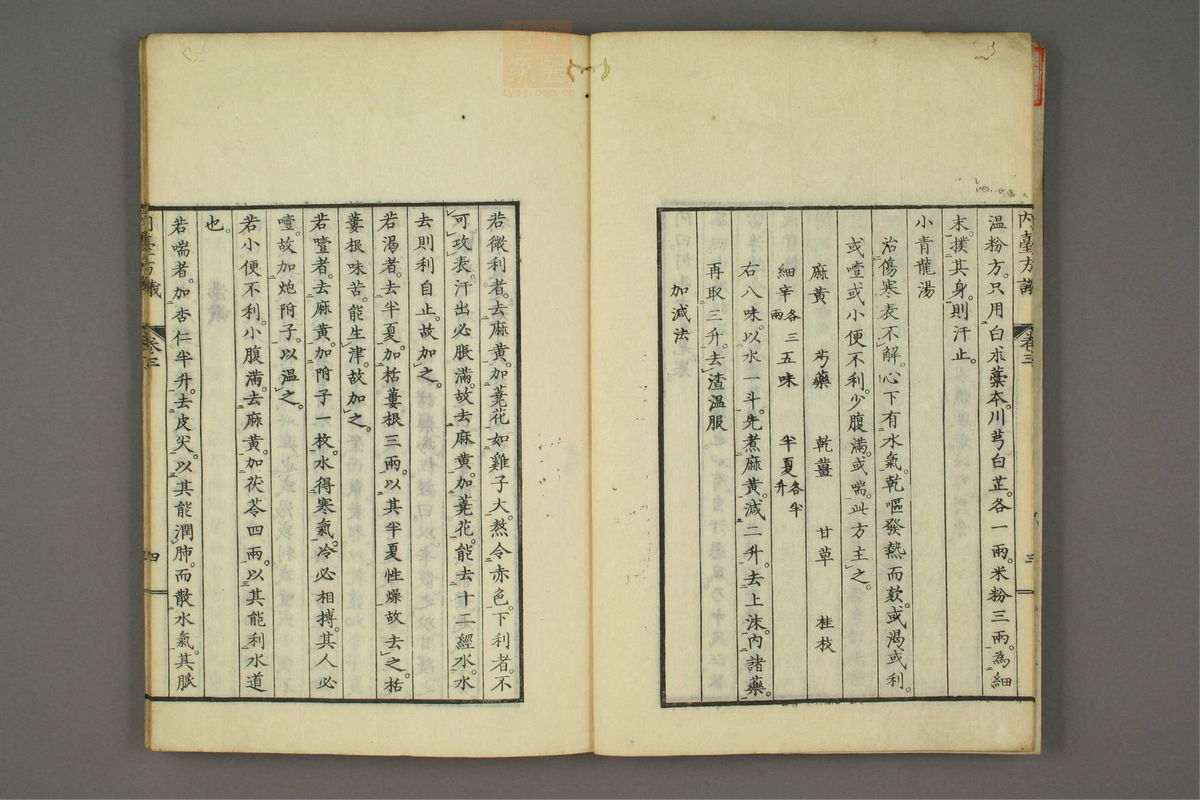 內臺方議 卷三 三
温粉方。只用白朮藁本。川芎白芷。各一兩。米粉三兩。為細
末。撲其身。則汗止。
小青龍湯
治傷寒表不解。心下有水氣。乾嘔發熱而欬。或渴或利。
或噎或小便不利。少腹滿。或喘。此方主之。
麻黃 芍藥 乾薑 甘草 桂枝
細辛各三兩 五味 半夏各半升
右八味。以水一斗。先煮麻黃。減二升。去上沫。內諸藥。
再取三升。去渣温服
加減法
若微利者。去麻黃。加蕘花如雞子大。熬令赤色。下利者。不
可攻表。汗出必脹滿。故去麻黃。加蕘花。能去十二經水。水
去則利自止。故加之。
若渴者。去半夏。加栝蔞根三兩。以其半夏性燥故去之。栝
蔞根味苦。能生津。故加之。
若噎者。去麻黃。加附子一枚。水得寒氣。冷必相搏。其人必
噎。故加炮附子。以温之。
若小便不利。小腹滿。去麻黃。加茯苓四兩。以其能利水道
也。
若喘者。加杏仁半升。去皮尖。以其能潤肺。而散水氣。其脈
內臺方議 卷三 四